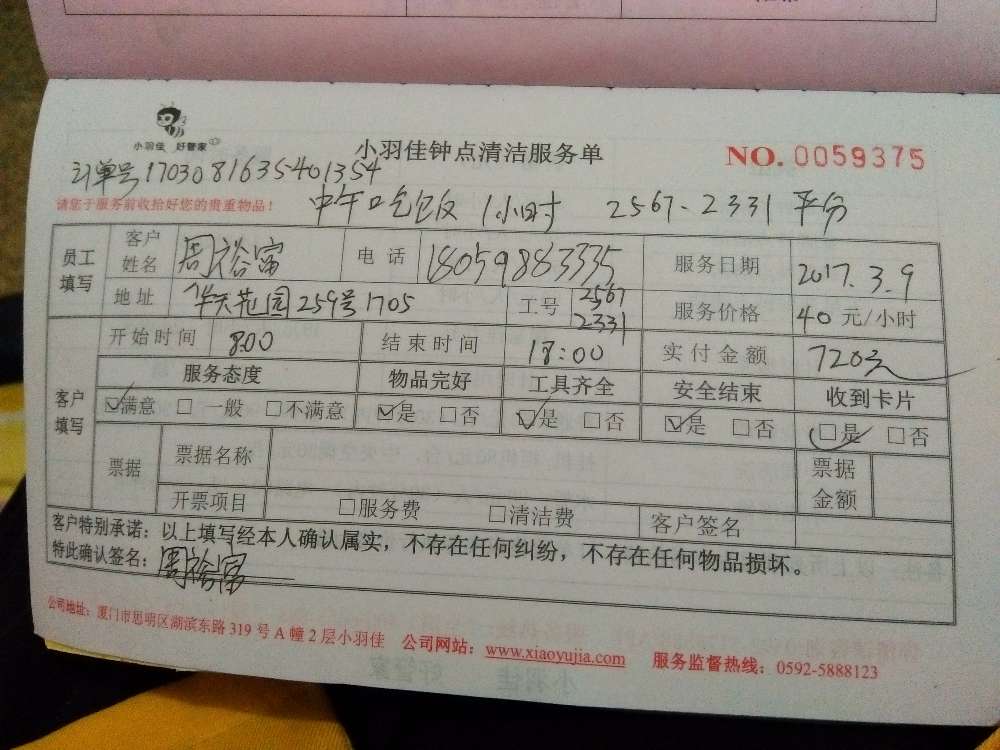 小羽佳 好管家
小羽佳钟点清洁服务单
NO. 0059375
订单号1703081635401354
请您于服务前收拾好您的贵重物品！
中午吃饭 1小时 2567-2331 平分
员工填写 客户姓名 周裕富 电话 18059883335 服务日期 2017.3.9
地址 华天花园259号1705 工号 2567 2331 服务价格 40元/小时
开始时间 8:00 结束时间 18:00 实付金额 720元
服务态度 物品完好 工具齐全 安全结束 收到卡片
客户填写 ☑满意 □一般 □不满意 ☑是 □否 ☑是 □否 ☑是 □否 ☑是 □否
票据 票据名称 票据金额
开票项目 □服务费 □清洁费 客户签名
客户特别承诺：以上填写经本人确认属实，不存在任何纠纷，不存在任何物品损坏。
特此确认签名：周裕富
公司地址：厦门市思明区湖滨东路319号A幢2层小羽佳 公司网站：www.xiaoyujia.com 服务监督热线：0592-5888123